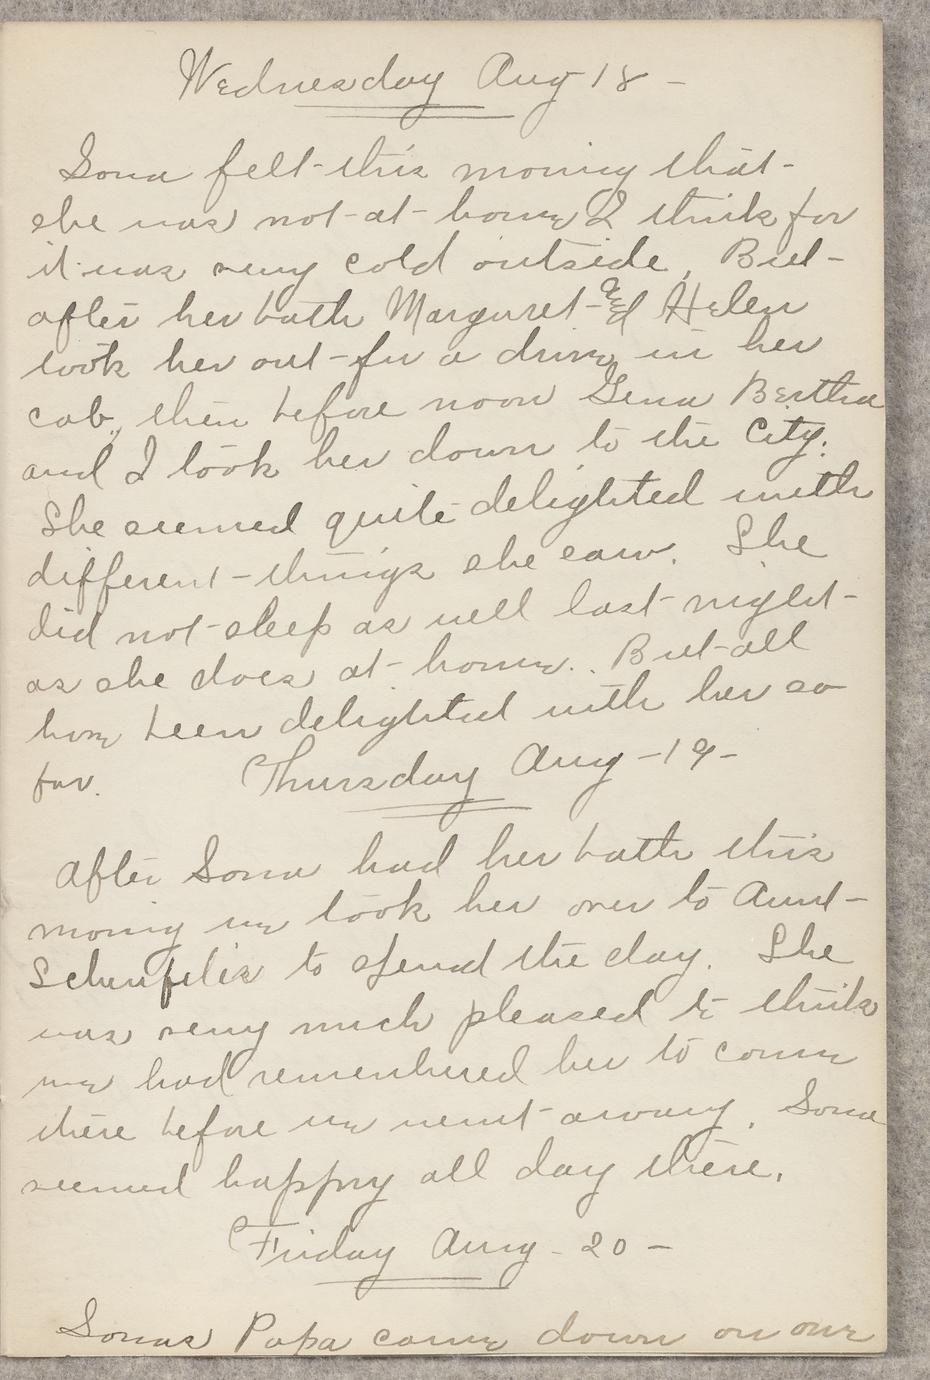 Wednesday Aug 18 -
Sona felt this moring that
she was not at home I think for
it was very cold outside, But
after her bath Margaret and Helen
took her out for a drive in her
cab, then before noon Gena Bertha
and I took her down to the City.
She seemed quite delighted with
different things she saw. She
did not sleep as well last night
as she does at home. But all
have been delighted with her so
far.
Thursday Aug - 19 -
After Sona had her bath this
moring we took her over to Aunt
to spend the day. She
was very much pleased to think
we had remembered her to come
there before we went away. Sona
seemed happy all day there.
Friday Aug - 20 -
Sonas Papa came down on our